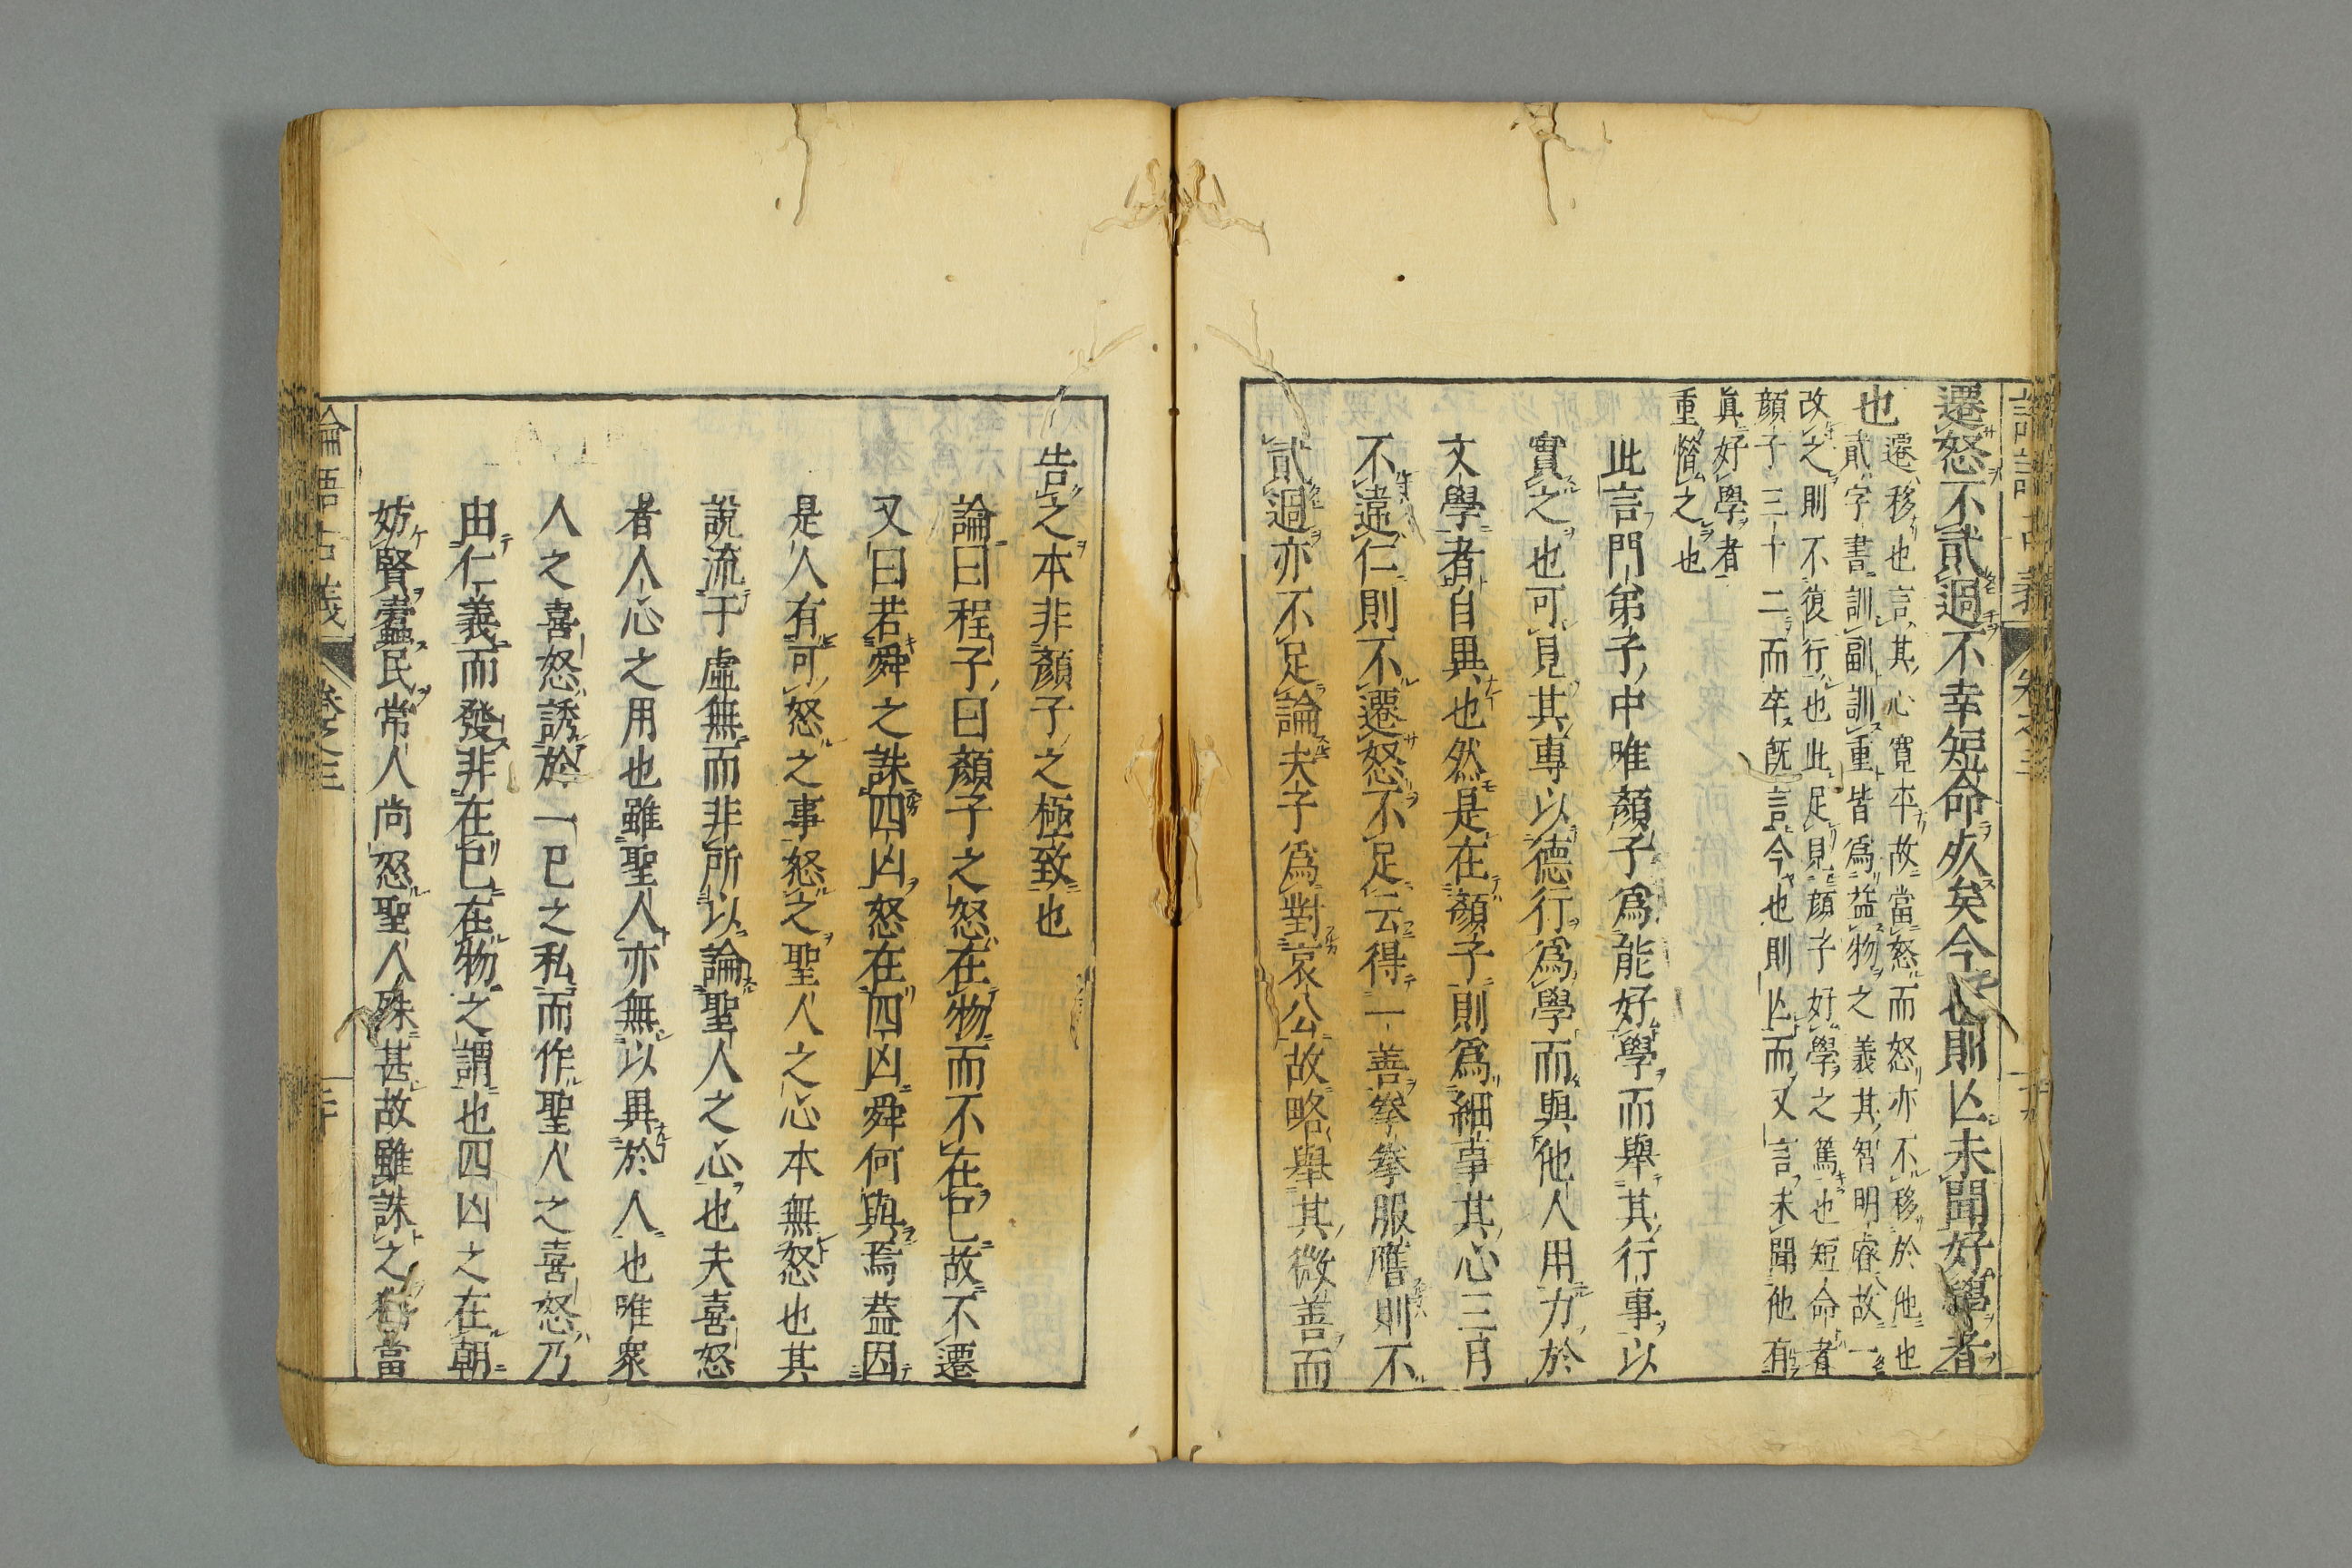 遷怒不貳過不幸短命死矣今也則亡未聞好學者
也
遷移也言其心寬平故當怒而怒亦不移於他也
貳字書訓副訓重皆爲益物之義其智明睿故一
改之則不復行也此足見顏子好學之篤也短命者
顏子三十二而卒既言今也則亡而又言未聞他有
眞好學者
重惜之也
此言門弟子中唯顏子爲能好學而舉其行事以
實之也可見其專以德行爲學而與他人用力於
文學者自異也然是在顏子則爲細事其心三月
不違仁則不遷怒不足云得一善拳拳服膺則不
貳過亦不足論夫子爲對哀公故略舉其微善而
告之本非顏子之極致也
論曰程子曰顏子之怒在物而不在己故不遷
又曰若舜之誅四凶怒在四凶舜何與焉蓋因
是人有可怒之事怒之聖人之心本無怒也其
說流于虛無而非所以論聖人之心也夫喜怒
者人心之用也雖聖人亦無以異於人也唯衆
人之喜怒誘於一己之私而作聖人之喜怒乃
由仁義而發非在己在物之謂也四凶之在朝
妨賢蠹民常人尚怒聖人殊甚故雖誅之猶當
論語古義
卷之三